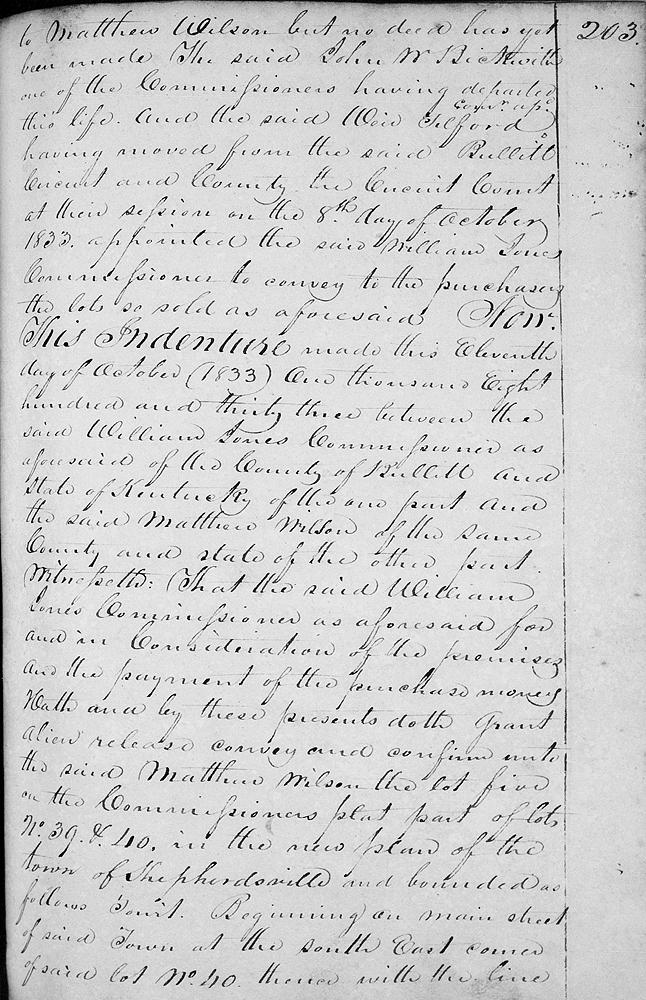 203.
to Matthew Wilson but no deed has yet
been made The said John W Beckwith
one of the Commissioners having departed
this life. And the said Weir Tilford
having moved from the said Bullitt
Circuit and County the Circuit Court
at their session on the 8th day of October
1833. appointed the said William Jones
Commissioner to convey to the purchasers
the lots so sold as aforesaid Now.
This Indenture made this Eleventh
day of October (1833) One thousand Eight
hundred and thirty three between the
said William Jones Commissioner as
aforesaid of the County of Bullitt and
State of Kentucky of the one part and
the said Matthew Wilson of the same
County and state of the other part.
Witnesseth: That the said William
Jones Commissioner as aforesaid for
and in Consideration of the premises
and the payment of the purchase money
Hath and by these presents doth Grant
Alien release convey and confirm unto
the said Matthew Wilson the lot five
on the Commissioners plat part of lots
No. 39. & 40. in the new plan of the
town of Shepherdsville and bounded as
follows Towit. Beginning on main street
of said Town at the south East corner
of said lot No. 40. thence with the line